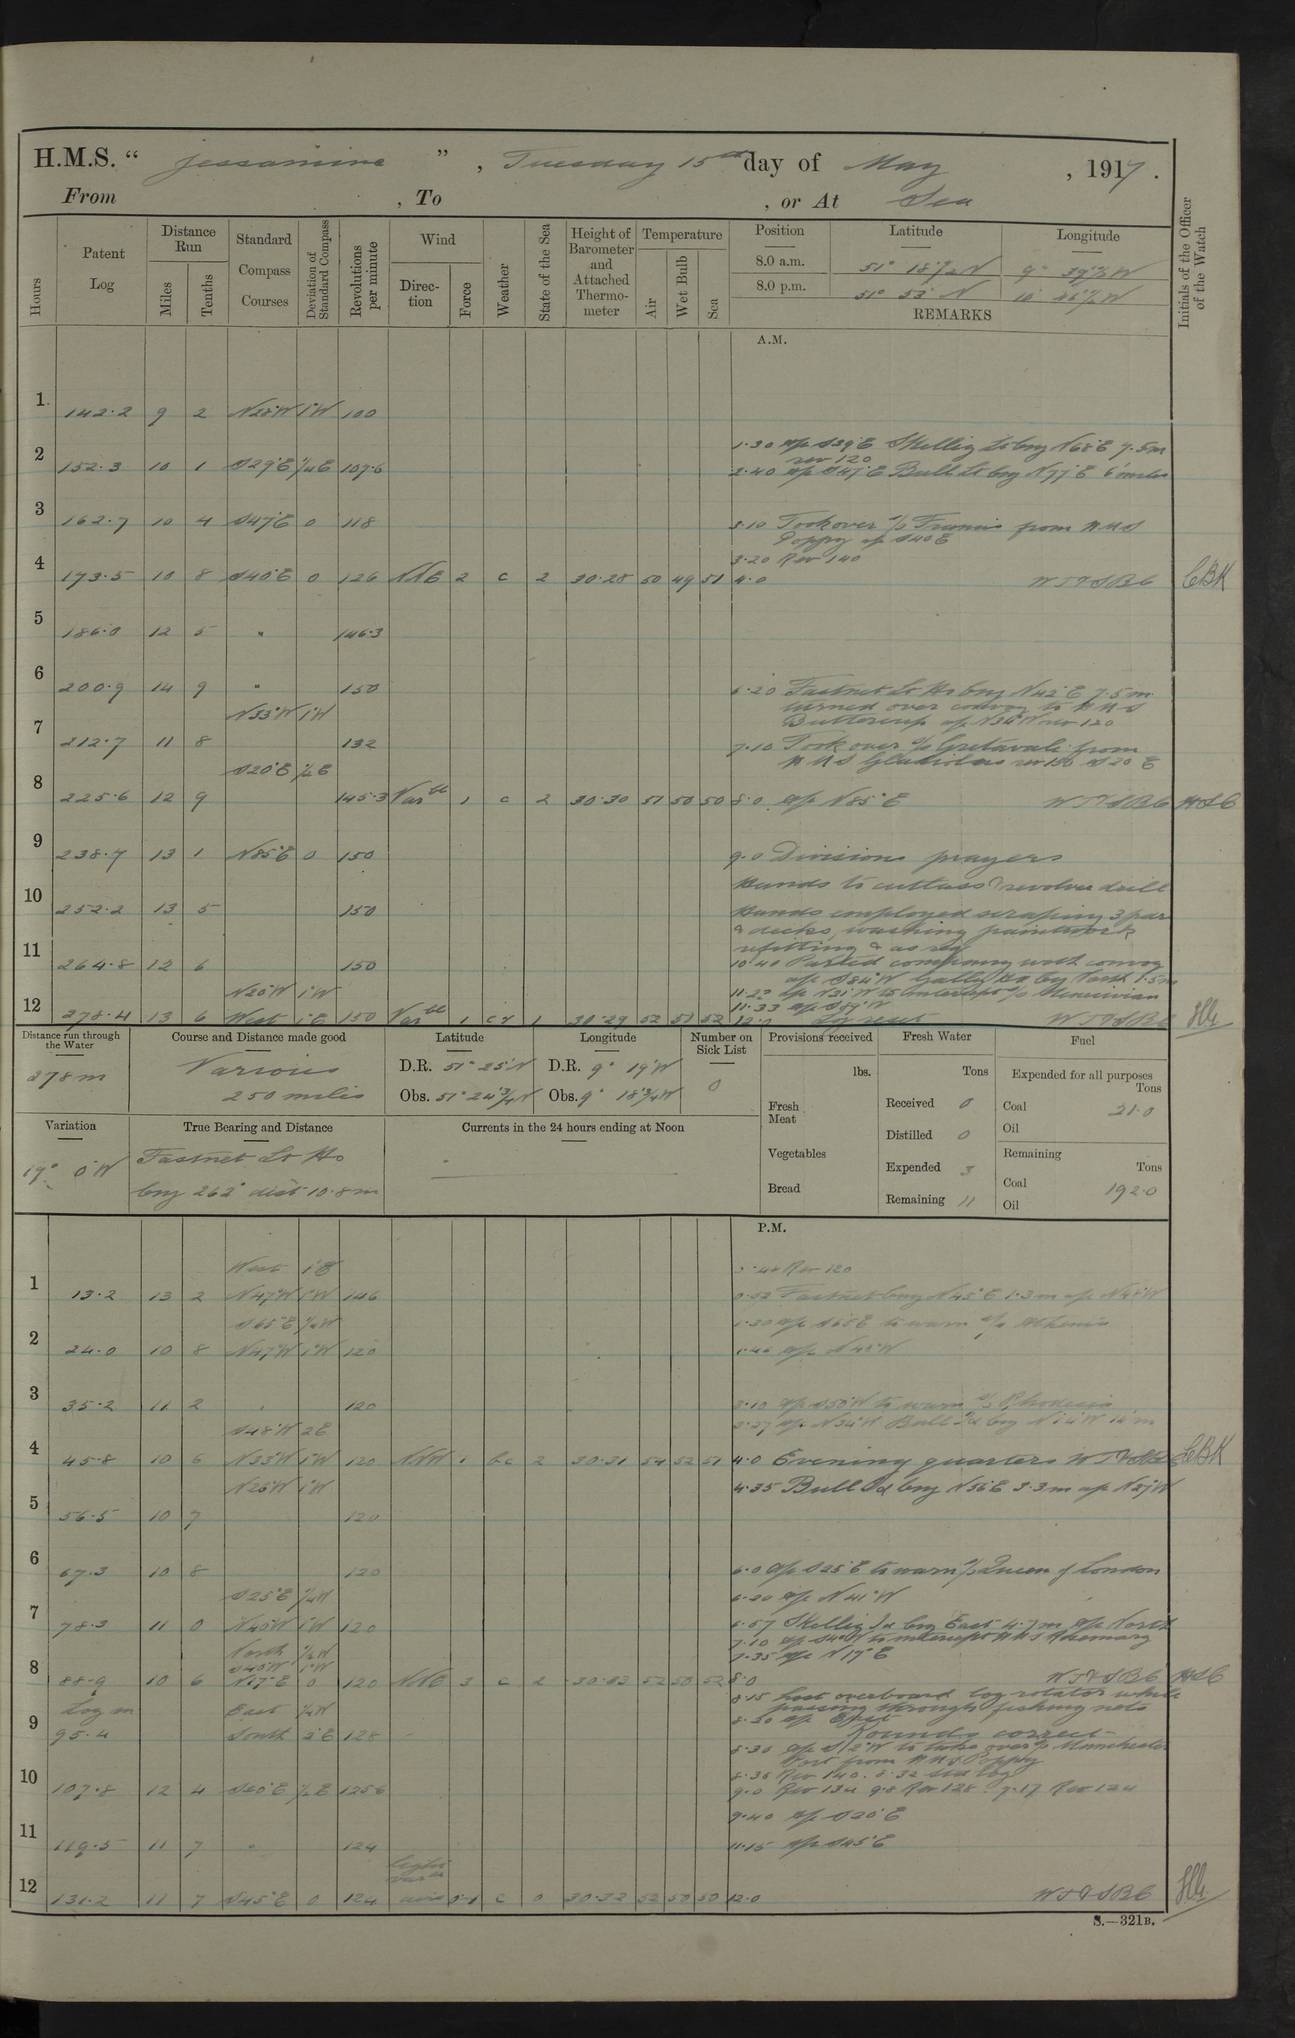 H.M.S. “ Jessamine ” , Tuesday 15th day of May , 1917 .
From , To , or At Sea
Hours
Patent Log
Distance Run
Miles
Tenths
Standard Compass Courses
Deviation of Standard Compass
Revolutions per minute
Wind
Direction
Force
Weather
State of the Sea
Height of Barometer and Attached Thermometer
Temperature
Air
Wet Bulb
Sea
Position Latitude Longitude
8.0 a.m. 51° 18' N 9° W
8.0 p.m. 51° 53' N 10° W
REMARKS
Initials of the Officer of the Watch
A.M.
1 142.2 9 2 N28°W 1°W 100
1.30 a/c S39°E Skellig Lt brg N68°E 7.5m
rev 120
2 152.3 10 1 S29°E ½E 107.6 2.40 a/c S47°E Bull Lt brg N77°E 6 miles
3 162.7 10 4 S47°E 0 118 3.10 Took over s/s Francis from HMS
Poppy a/c S40E
3.20 Rev 140
4 173.5 10 8 S40°E 0 126 NNE 2 c 2 30.28 50 49 51 4.0 CBK
5 186.0 12 5 " 146.3
6 200.9 14 9 " 150 6.20 Fastnet Lt Ho brg N42°E 7.5m
N33°W 1°W turned over convoy to HMS
Buttercup a/c N34°W rev 120
7 212.7 11 8 132 7.10 Took over s/s Gretavale from
S20°E ½E HMS Gladiolus rev 150 S20°E
8 225.6 12 9 145.3 Varble 1 c 2 30.30 51 50 50 8.0 a/c N85°E
9 238.7 13 1 N85°E 0 150 9.0 Divisions prayers
Hands to cutlass & revolver drill
10 252.2 13 5 150 Hands employed scraping spar
& decks, washing paintwork
refitting & as req
11 264.8 12 6 150 10.40 Parted company with convoy
a/c S84°W Galley Hd brg North 1.5m
N20°W 1°W
11.33 a/c S89°W
12 278.4 13 6 West 1°E 150 Varble 1 cr 1 30.29 52 51 52 12.0 Log reset
Distance run through the Water
278m
Course and Distance made good
Various
250 miles
Latitude
D.R. 51° 25' N
Obs. 51° 24¾' N
Longitude
D.R. 9° 19' W
Obs. 9° 18¾' W
Number on Sick List
0
Provisions received
lbs.
Fresh Meat
Vegetables
Bread
Fresh Water
Tons
Received 0
Distilled 0
Expended 3
Remaining 11
Fuel
Expended for all purposes
Tons
Coal 21.0
Oil
Remaining
Tons
Coal 192.0
Oil
Variation
19° 0'W
True Bearing and Distance
Fastnet Lt Ho
brg 262° dist 10.8m
Currents in the 24 hours ending at Noon
P.M.
West 1°E Rev 120
1 13.2 13 2 N47°W 1°W 146 0.52 Fastnet brg N45°E 1.3m a/c N48°W
S65°E ½W 1.30 a/c S65°E to warn s/s Athenic
2 24.0 10 8 N47°W 1°W 120 1.46 a/c N48°W
3 35.2 11 2 120 3.10 a/c S50°W to warn s/s Rhodesia
S48°W 2E
4 45.8 10 6 N33°W 1°W 120 NNW 1 bc 2 30.31 54 52 51 4.0 Evening quarters CBK
N26°W 1°W 4.35 Bull Id brg N56°E 3.3m a/c N27°W
5 56.5 10 7 120
6 67.3 10 8 120 6.0 a/c S25°E to warn s/s Queen of London
S25°E ½W 6.20 a/c N41°W
7 78.3 11 0 N40°W 1°W 120 6.57 Skellig Id brg East 4.7m a/c North
North ½W 7.10 a/c S40°W to intercept HMS Rosemary
S40°W 1°W 7.35 a/c N17°E
8 88.9 10 6 N17°E 0 120 NNE 3 c 2 30.33 52 50 52 8.0
Log in East ½W 8.15 Lost overboard log rotator while
passing through fishing nets
8.20 a/c East
Rounds correct
9 95.4 South 2°E 128 8.30 a/c S12°W to take over s/s Manchester
Port from HMS Poppy
8.36 Rev 140. 8.32 Set log
10 107.8 12 4 S20°E ½E 125.6 9.0 Rev 134 9.8 Rev 128 9.17 Rev 124
9.40 a/c S20°E
11 119.5 11 7 " 124 11.15 a/c S45°E
Light
12 131.2 11 7 S45°E 0 124 airs 0-1 c 0 30.32 52 50 50 12.0
S.—321B.